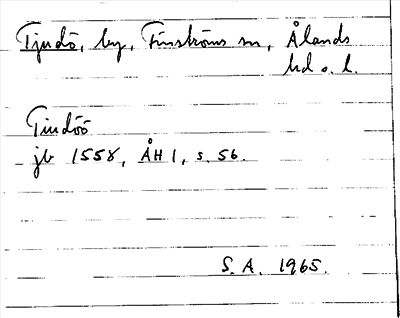 Tjudö, by, Finströms sn, Ålands
hd o. l.
Tiudöö
jb 1558, ÅH 1, s. 56.
S. A. 1965.